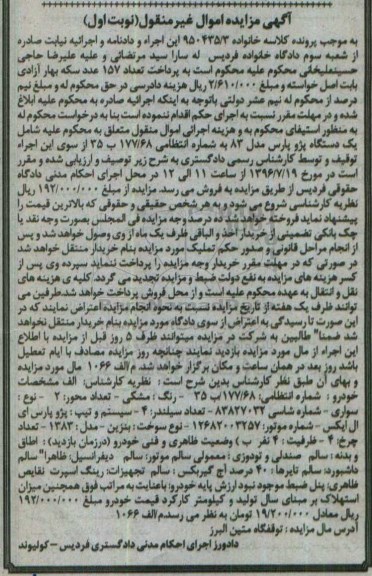 آگهی مزایده اموال غیرمنقول(نوبت اول)
به موجب پرونده کلاسه خانواده ۹۵۰۴۳۵/۳ این اجراء و دادنامه و اجرائیه نیابت صادره
از شعبه سوم دادگاه خانواده فردیس له سارا سید مرتضائی و علیه علیرضا حاجی
حسینعلیخانی محکوم علیه محکوم است به پرداخت تعداد ۱۵۷ عدد سکه بهار آزادی
بابت اصل خواسته و مبلغ ۲/۶۱۰/۰۰۰ ریال هزینه دادرسی در حق محکوم له و مبلغ نیم
درصد از محکوم له نیم عشر دولتی باتوجه به اینکه اجرائیه صادره به محکوم علیه ابلاغ
شده و در مهلت مقرر نسبت به اجرای حکم اقدام ننموده است بنا به درخواست محکوم له
به منظور استیفای محکوم به و هزینه اجرائی اموال منقول متعلق به محکوم علیه شامل
یک دستگاه پژو پارس مدل ۸۳ به شماره انتظامی ۱۷۷/۶۸ ب ۳۵ از سوی این اجراء
توقیف و توسط کارشناس رسمی دادگستری به شرح زیر توصیف و ارزیابی شده و مقرر
است در مورخ ۱۳۹۶/۷/۱۹ از ساعت ۱۱ الی ۱۲ در محل اجرای احکام مدنی دادگاه
حقوقی فردیس از طریق مزایده به فروش می رسد. مزایده از مبلغ ۱۹۲/۰۰۰/۰۰۰ ریال
نظریه کارشناسی شروع می شود و به هر شخص حقیقی و حقوقی که بالاترین قیمت را
پیشنهاد نماید فروخته خواهد شد.ده درصد وجه مزایده فی المجلس بصورت وجه نقد یا
چک بانکی تضمینی از خریدار اخذ و الباقی ظرف یک ماه از وی وصول خواهد شد و پس
از انجام مراحل قانونی و صدور حکم تملیک مورد مزایده بنام خریدار منتقل خواهد شد
در صورتی که در مهلت مقرر خریدار وجه مزایده را پرداخت ننماید سپرده وی پس از
کسر هزینه های مزایده به نفع دولت ضبط و مزایده تجدید می گردد. کلیه ی هزینه های
نقل و انتقال به عهده محکوم علیه است و از محل فروش پرداخت خواهد شد.طرفین می
توانند ظرف یک هفته از تاریخ مزایده نسبت به نحوه انجام مزایده اعتراض نمایند که در
این صورت تا رسیدگی به اعتراض از سوی دادگاه مورد مزایده بنام خریدار منتقل نخواهد
شد ضمنا" طالبین به شرکت در مزایده میتوانند ظرف ۵ روز قبل از مزایده با اطلاع
این اجراء از مال مورد مزایده بازدید نمایند چنانچه روز مزایده مصادف با ایام تعطیل
باشد روز بعد در همان ساعت و مکان برگزار خواهد شد. م/الف ۱۰۶۶ مال مورد مزایده
و بهای آن طبق نظر کارشناس بدین شرح است : نظریه کارشناس: الف مشخصات
خودرو : شماره انتظامی: ۱۷۷/۶۸ب ۳۵ - رنگ : مشکی - تعداد محور: ۲ - نوع :
سواری - شماره شاسی ۸۳۸۲۷۰۳۲ - تعداد سیلندر: ۴ - سیستم و تیپ : پژو پارس ای
ال ایکس - شماره موتور: ۱۲۴۸۲۰۰۳۲۵۷ - نوع سوخت : بنزین - مدل : ۱۳۸۳ - تعداد
چرخ: ۴ - ظرفیت : ۴ نفر ب ) وضعیت ظاهری و فنی خودرو (درزمان بازدید) : اطاق
و بدنه : سالم صندلی و تودوزی : معمولی سالم موتور: سالم دیفرانسیل: ظاهرا" سالم
داشبورد: سالم تایرها : ۴۰ درصد آج گیربکس : سالم تجهیزات: رینگ اسپرت نقایص
ظاهری: پنل ضبط موجود نبود ارزش پایه خودرو: باعنایت به مراتب فوق همچنین میزان
استهلاک بر مبنای سال تولید و کیلومتر کارکرد قیمت خودرو مبلغ ۱۹۲/۰۰۰/۰۰۰
ریال معادل ۱۹/۲۰۰/۰۰۰ تومان به نظر می رسد.م/الف ۱۰۶۶
آدرس مال مزایده : توقفگاه متین البرز
دادورز اجرای احکام مدنی دادگستری فردیس - کولیوند